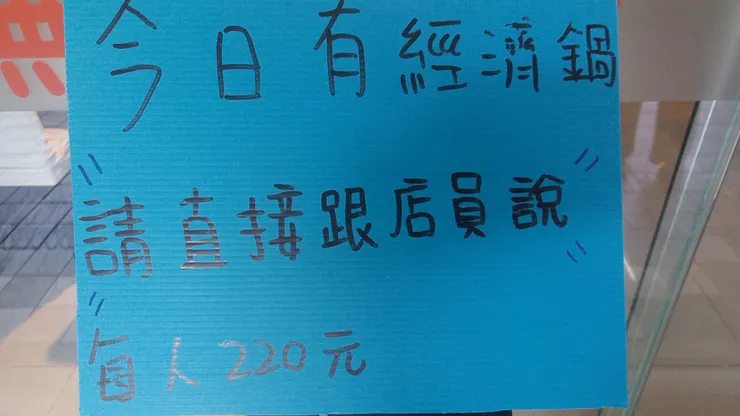 今日有經濟鍋
〃請直接跟店員說〃
每人220元